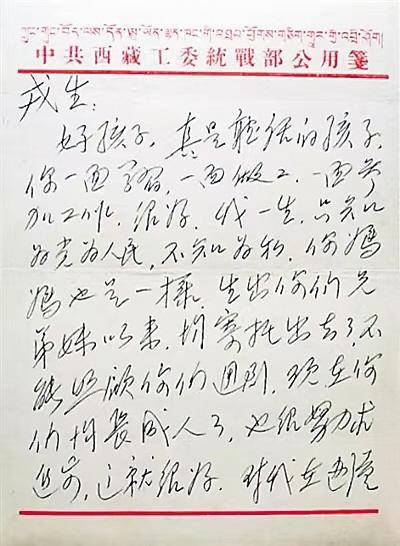 中共西藏工委統戰部公用箋
戎生:
好孩子,真是聽话的孩子,
你一面学習,一面做工,一面参
加工作,很好。我一生,只知
为党为人民,不知为私,你媽
媽也是一樣,生出你们兄
弟妹以来,均寄托出去了,不
能照顧你们 现在你
们均長成人了,也很努力求
这就很好。